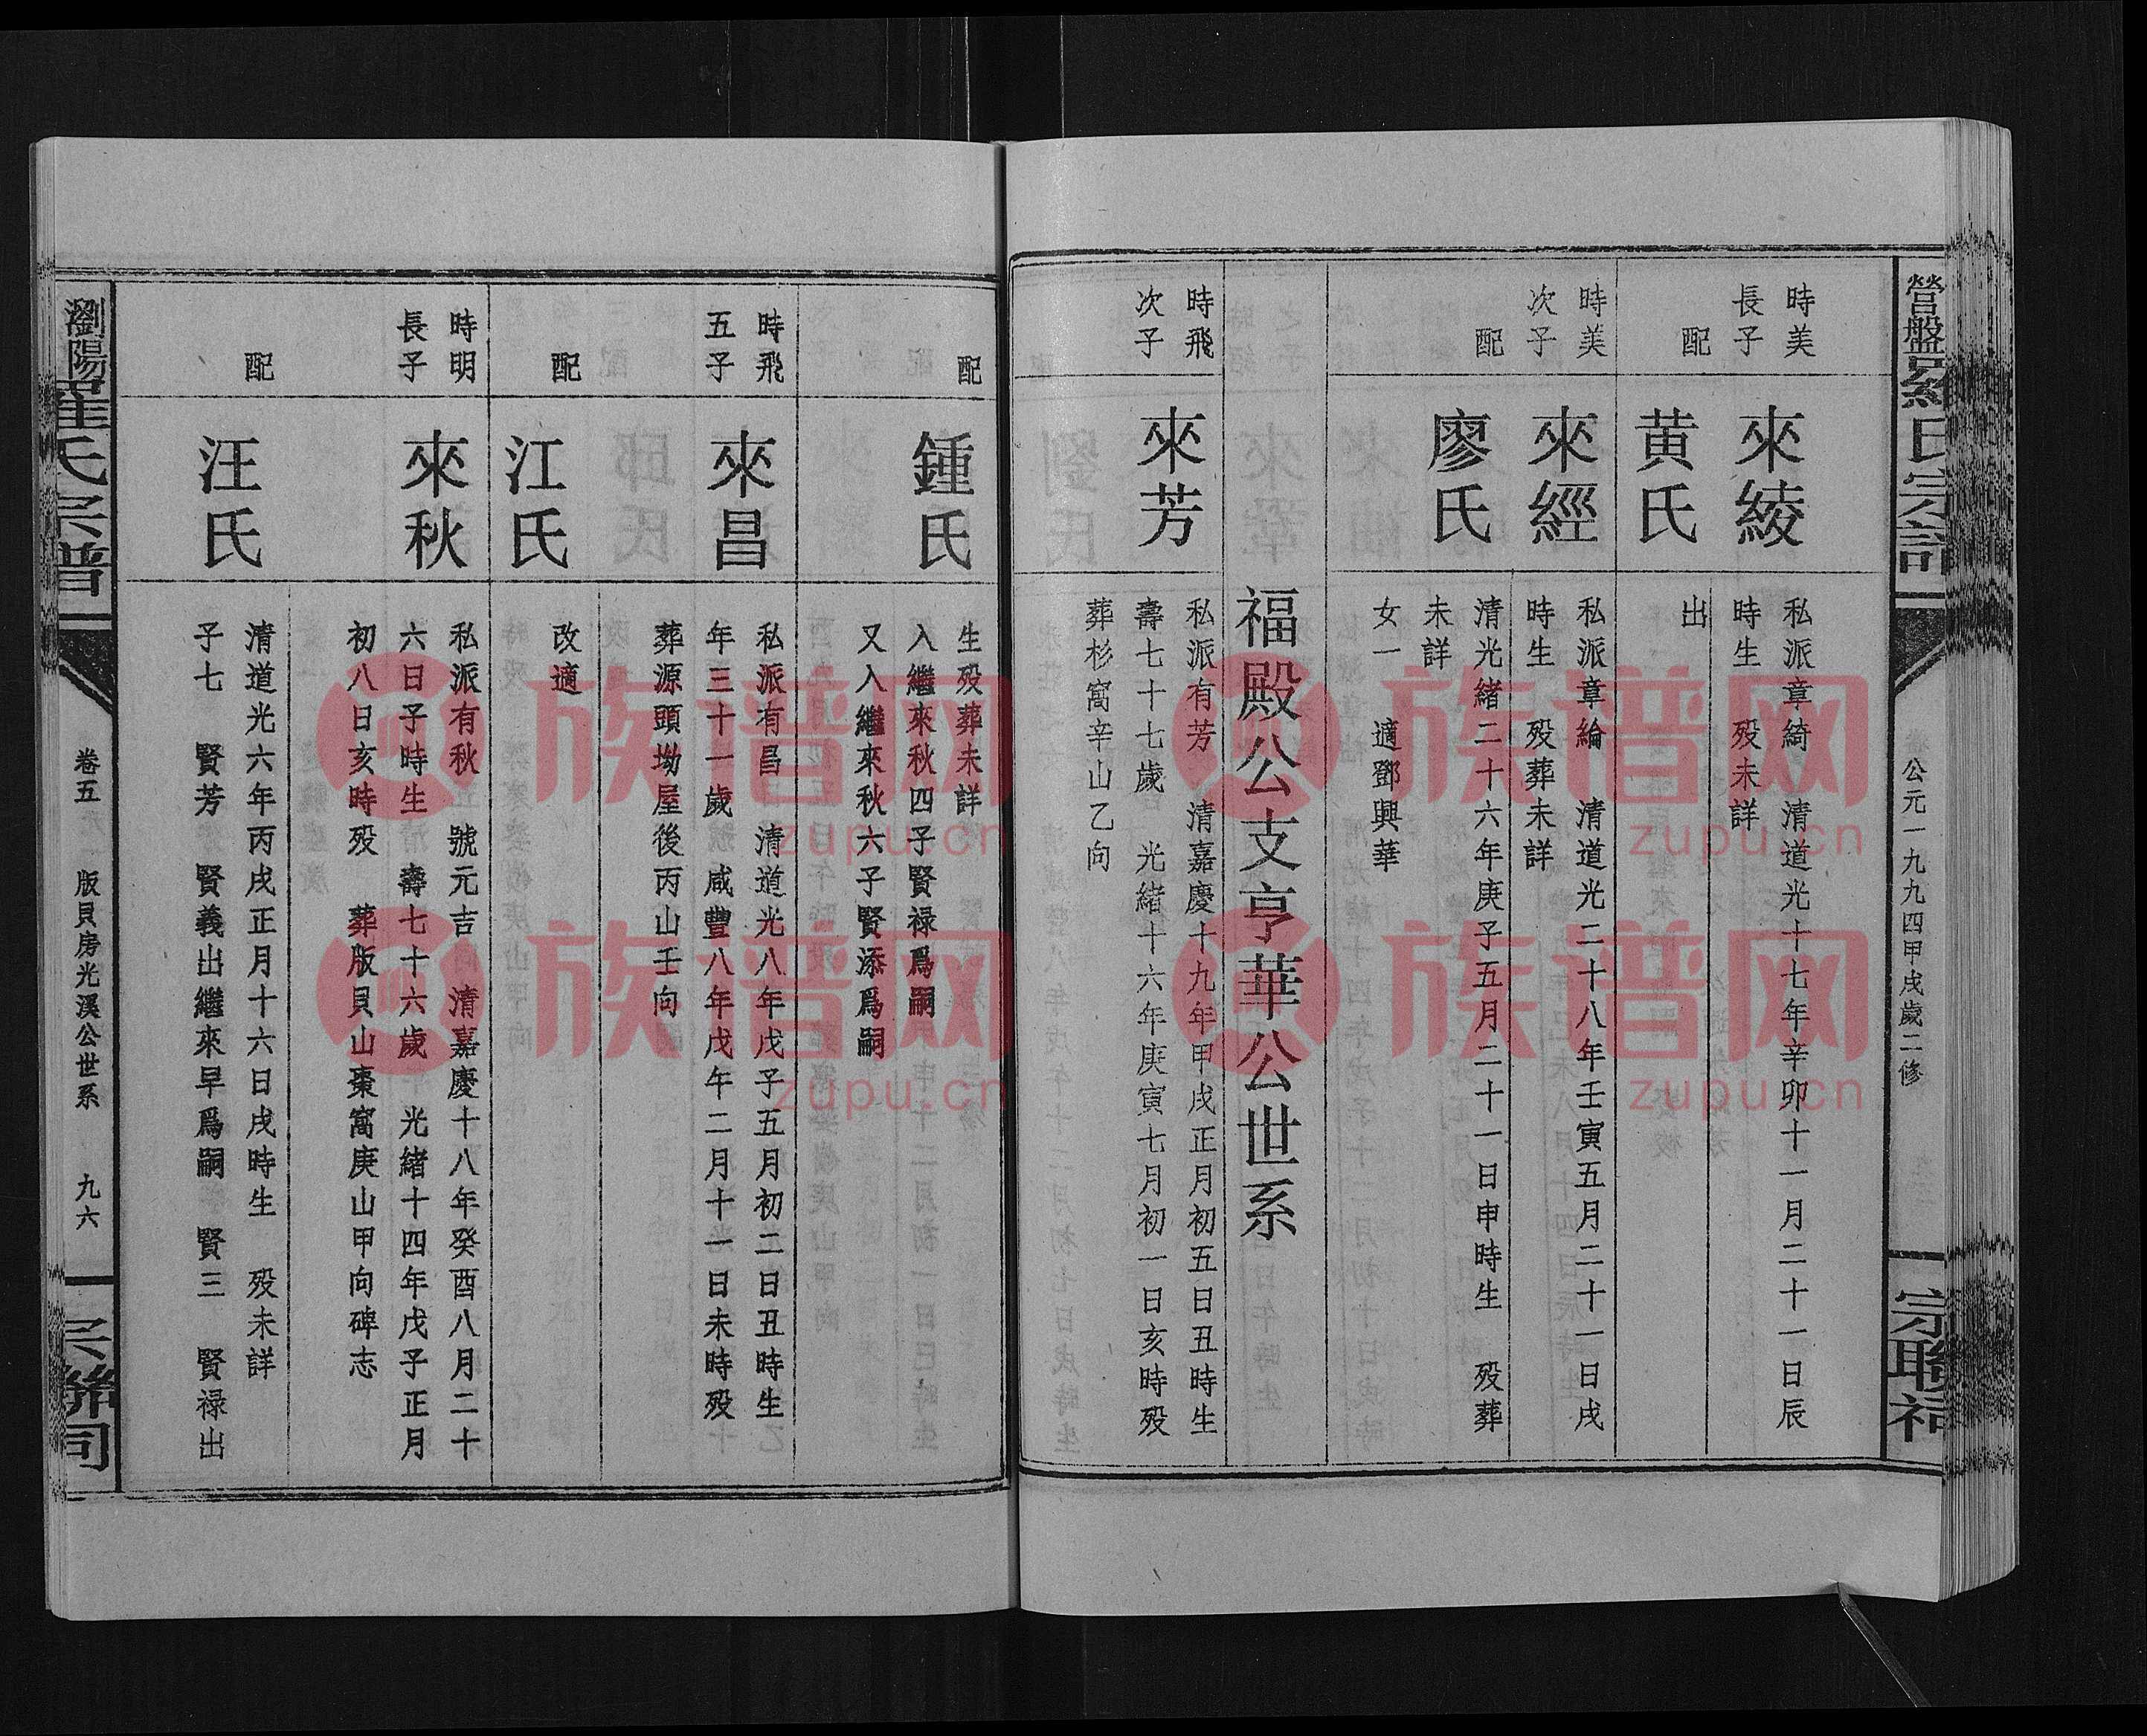 營盤羅氏宗譜
公元一九九四甲戌歲二修
宗聯祠
時美
長子
來綾
私派章綺 清道光十七年辛卯十一月二十一日辰
時生 歿未詳
配
黄氏
出
時美
次子
來經
私派章綸 清道光二十八年壬寅五月二十一日戌
時生 歿葬未詳
配
廖氏
清光緒二十六年庚子五月二十一日申時生 歿葬
未詳
女一 適鄧興華
福殿公支亨華公世系
時飛
次子
來芳
私派有芳 清嘉慶十九年甲戌正月初五日丑時生
壽七十七歲 光緒十六年庚寅七月初一日亥時歿
葬杉窩辛山乙向
配
鍾氏
生歿葬未詳
入繼來秋四子賢禄爲嗣
又入繼來秋六子賢添爲嗣
時飛
五子
來昌
私派有昌 清道光八年戊子五月初二日丑時生
年三十一歲 咸豐八年戊午二月十一日未時歿
葬源頭坳屋後丙山壬向
配
江氏
改適
時明
長子
來秋
私派有秋 號元吉 清嘉慶十八年癸酉八月二十
六日子時生 壽七十六歲 光緒十四年戊子正月
初八日亥時歿 葬版貝山棗窩庚山甲向碑志
配
汪氏
清道光六年丙戌正月十六日戌時生 歿未詳
子七 賢芳 賢義出繼來早爲嗣 賢三 賢禄出
瀏陽羅氏宗譜
卷五 版貝房光溪公世系 九六
宗聯祠
族谱网
zupu.cn
族谱网
zupu.cn
族谱网
zupu.cn
族谱网
zupu.cn